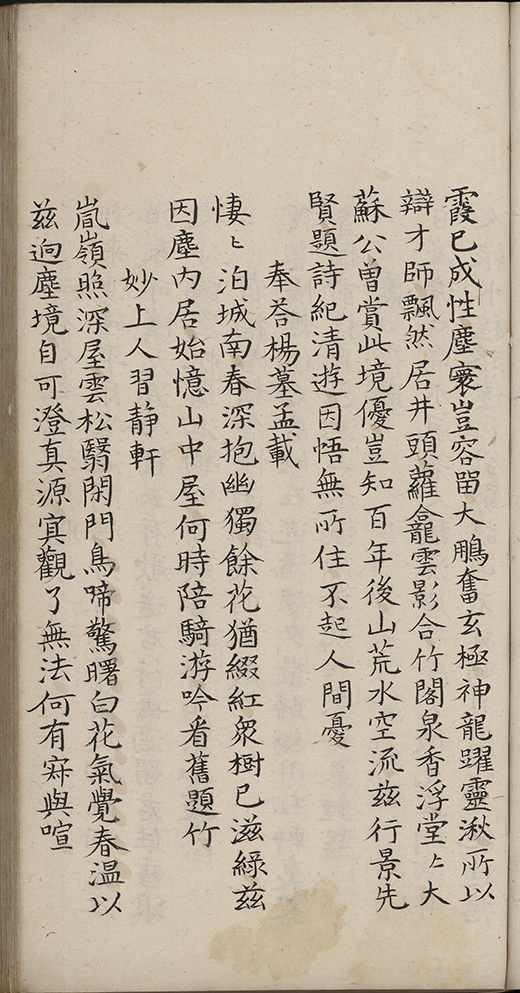 霞已成性塵寰豈容留大鵬奮玄極神龍躍靈湫所以
辯才師飄然居井頭蘿龕雲影合竹閣泉香浮堂〻大
蘇公曾賞此境優豈知百年後山荒水空流茲行景先
賢題詩紀清遊因悟無所住不起人間憂
奉荅楊墓孟載
悽〻泊城南春深抱幽獨餘花猶綴紅衆樹已滋綠茲
因塵内居始憶山中屋何時陪騎游吟看舊題竹
妙上人習静軒
嵐嶺照深屋雲松翳閑門鳥啼驚曙白花氣覺春温以
茲逈塵境自可澄真源㝠觀了無法何有㝥與喧